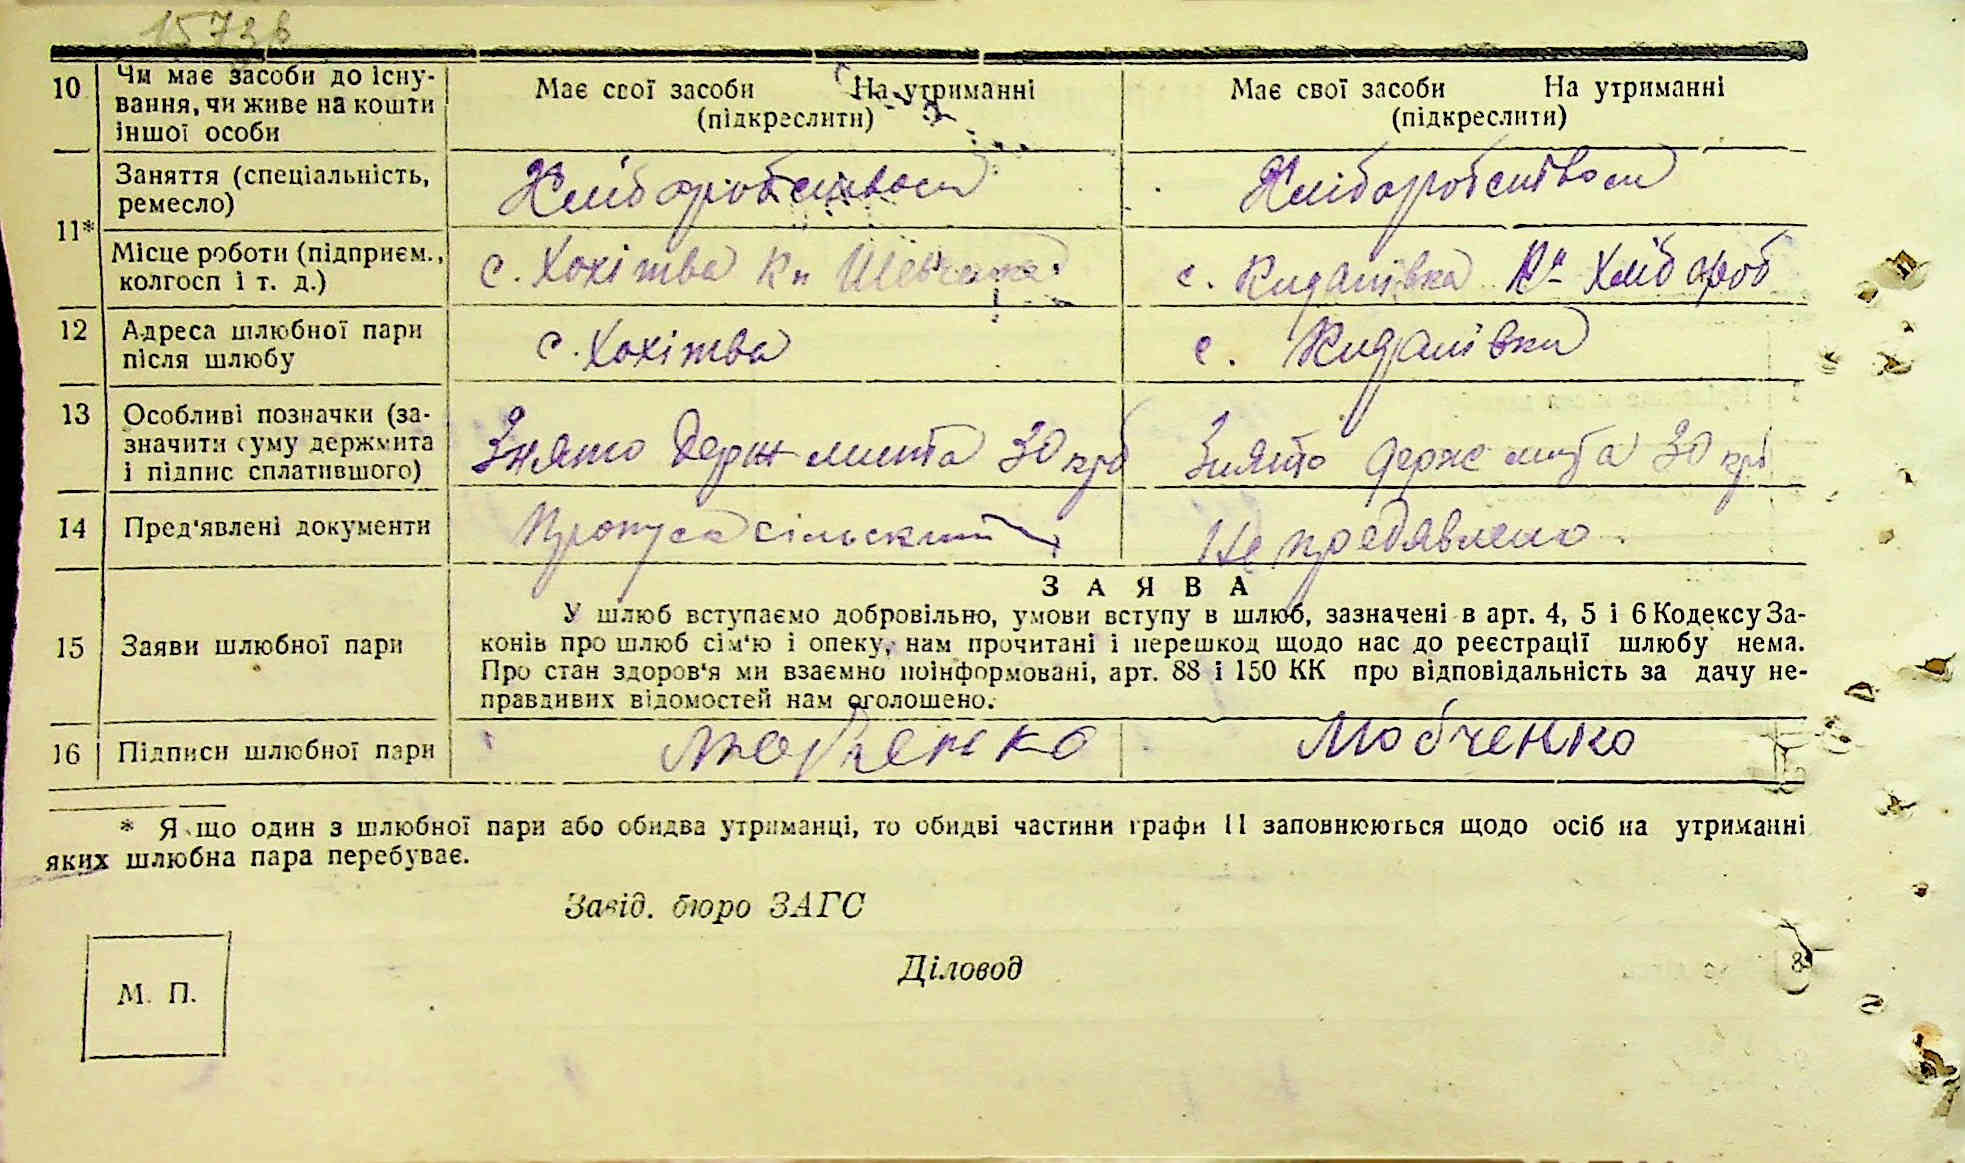 1573в
10 Чи має засоби до існу-
вання, чи живе на кошти
іншої особи
Має свої засоби На утриманні
(підкреслити)
Має свої засоби На утриманні
(підкреслити)
11*
Заняття (спеціальність,
ремесло)
Хліборобством
Хліборобством
Місце роботи (підприєм.,
колгосп і т. д.)
с. Хохітва Кп Шевченка
с. Киданівка Кп Хлібороб
12 Адреса шлюбної пари
після шлюбу
с. Хохітва
с. Киданівки
13 Особливі позначки (за-
значити суму держмита
і підпис сплатившого)
Знято держ мита 30 крб
Знято держ мита 30 крб
14 Пред'явлені документи
сільський
Не предявлено
З А Я В А
15 Заяви шлюбної пари
У шлюб вступаємо добровільно, умови вступу в шлюб, зазначені в арт. 4, 5 і 6 Кодексу За-
конів про шлюб сім'ю і опеку, нам прочитані і перешкод щодо нас до реєстрації шлюбу нема.
Про стан здоров'я ми взаємно поінформовані, арт. 88 і 150 КК про відповідальність за дачу не-
правдивих відомостей нам оголошено.
16 Підписи шлюбної пари
Мовченко
* Якщо один з шлюбної пари або обидва утриманці, то обидві частини графи 11 заповнюються щодо осіб на утриманні
яких шлюбна пара перебуває.
Завід. бюро ЗАГС
Діловод
М. П.